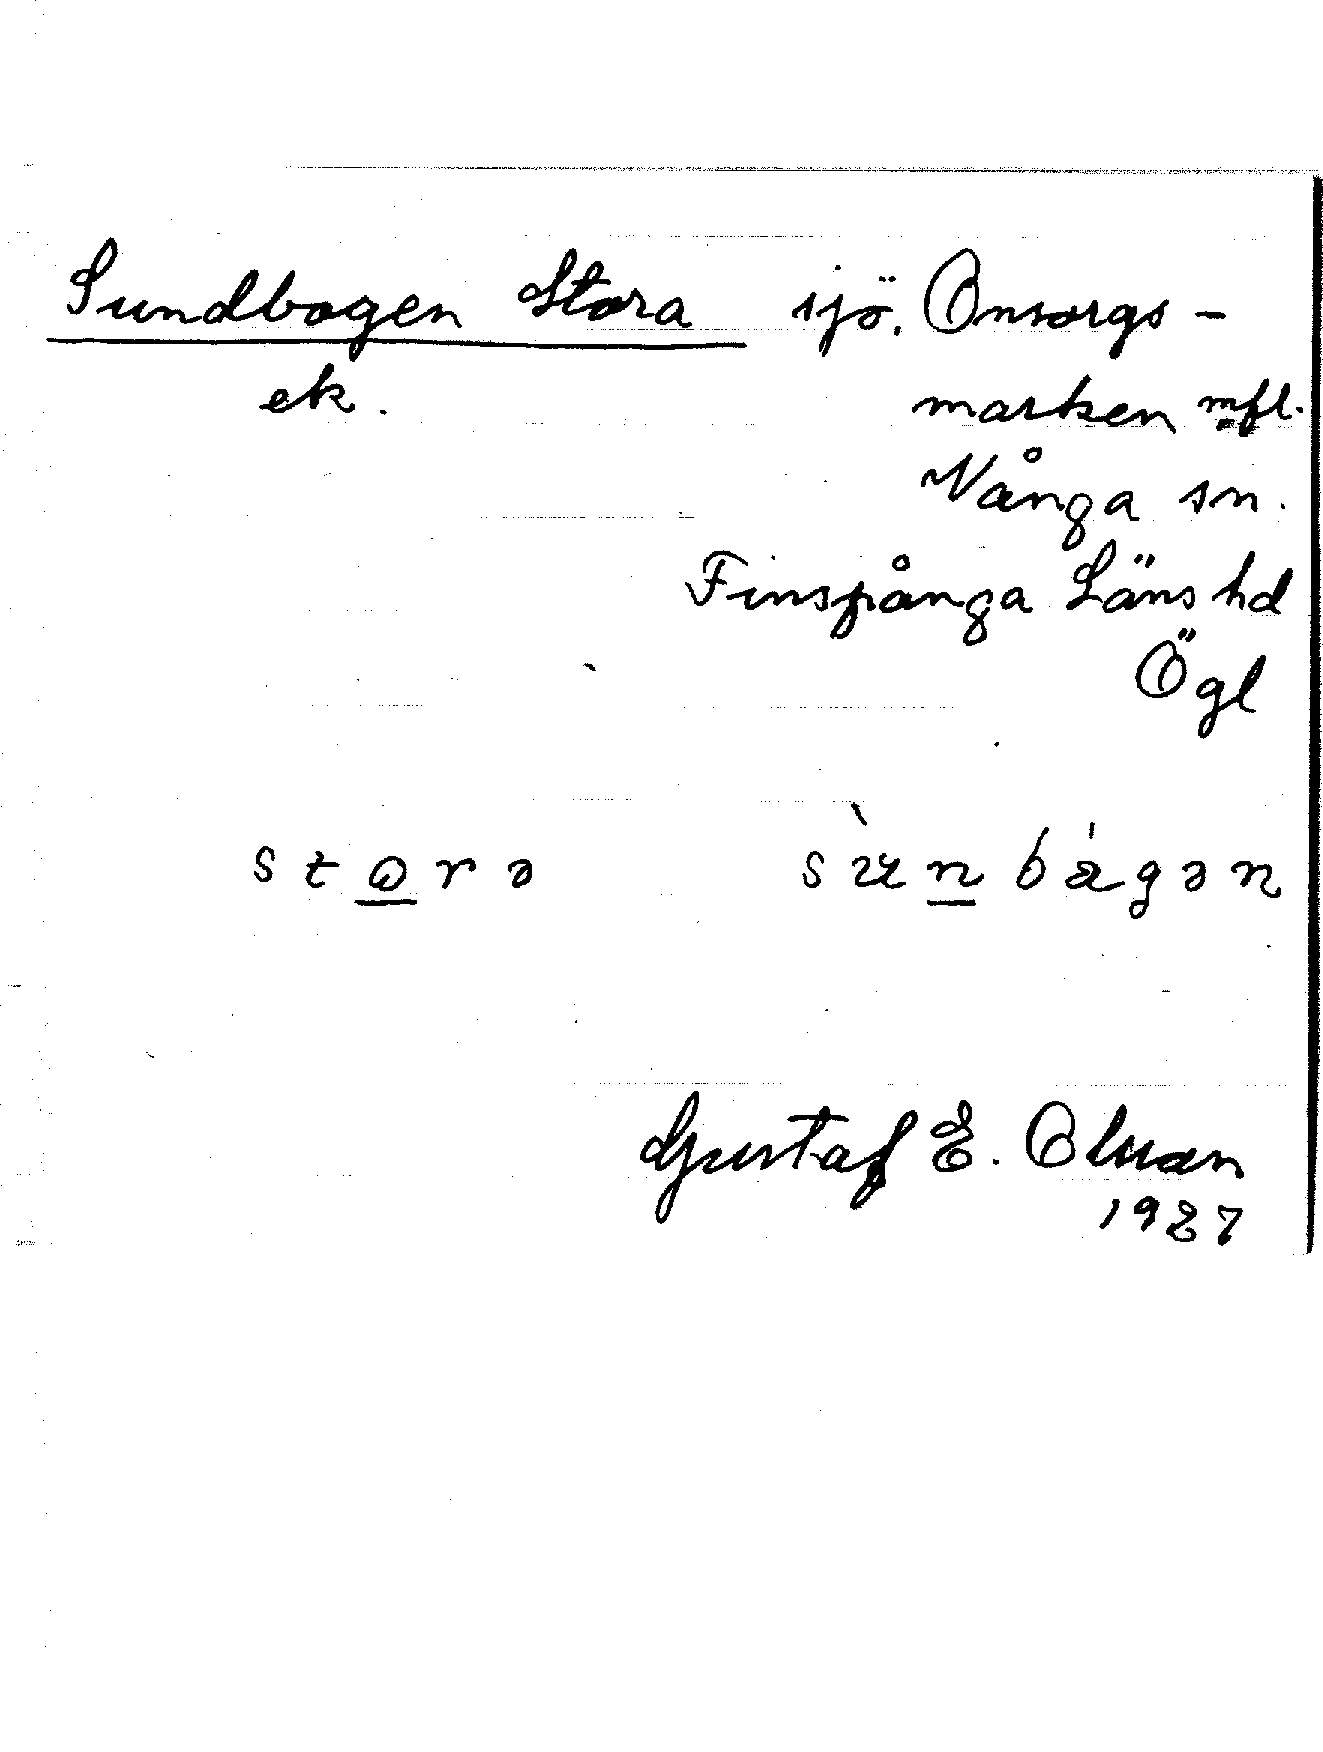 Sundbogen Stora sjö. Onsorgs-
ek. marken mfl.
Vånga sn.
Finspånga Läns hd
Ögl
storə sùnbágən
Gustaf E. Olsson
1927